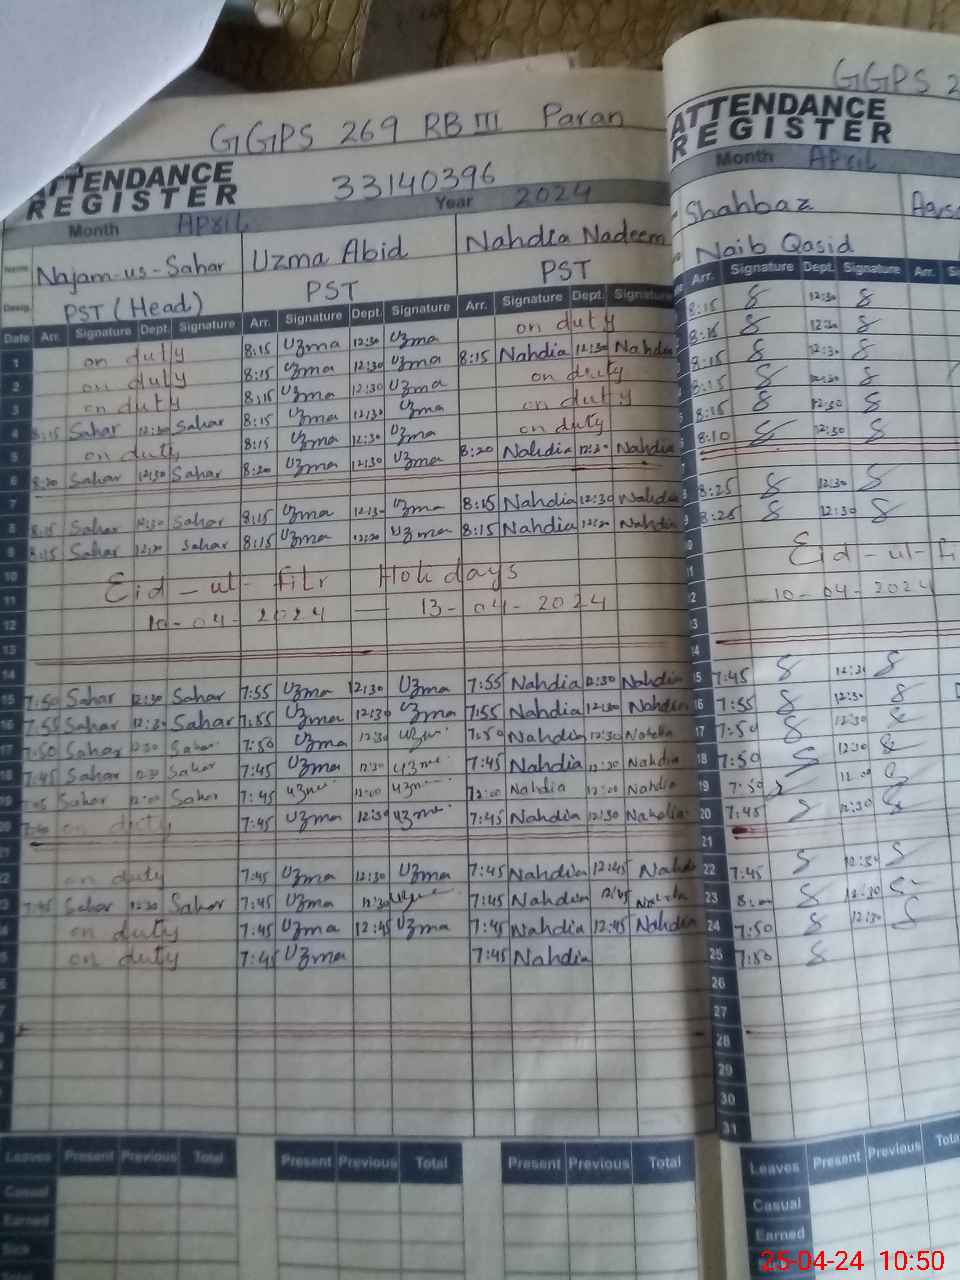 GGPS 269 RB III Paran
ATTENDANCE REGISTER
33140396
Month April Year 2024
Name Najam-us-Sahar Uzma Abid Nahdia Nadeem
Desig. PST (Head) PST PST
Date Arr. Signature Dept. Signature Arr. Signature Dept. Signature Arr. Signature Dept. Signature
1 on duty 8:15 Uzma 12:30 Uzma on duty
2 on duty 8:15 Uzma 12:30 Uzma 8:15 Nahdia 12:30 Nahdia
3 on duty 8:15 Uzma 12:30 Uzma on duty
4 8:15 Sahar 12:30 Sahar 8:15 Uzma 12:30 Uzma on duty
5 on duty 8:15 Uzma 12:30 Uzma on duty
6 8:20 Sahar 12:30 Sahar 8:20 Uzma 12:30 Uzma 8:20 Nahdia Nahdia
7
8 8:15 Sahar Sahar 8:15 Uzma Uzma 8:15 Nahdia 12:30 Nahdia
9 8:15 Sahar Sahar 8:15 Uzma Uzma 8:15 Nahdia Nahdia
10 Eid-ul-fitr Holidays
11
12 10-04-2024 — 13-04-2024
13
14
15 7:50 Sahar 12:30 Sahar 7:55 Uzma 12:30 Uzma 7:55 Nahdia 12:30 Nahdia
16 7:55 Sahar 12:30 Sahar 7:55 Uzma 12:30 Uzma 7:55 Nahdia 12:30 Nahdia
17 7:50 Sahar 12:30 Sahar 7:50 Uzma 12:30 7:50 Nahdia 12:30 Nahdia
18 7:45 Sahar 12:30 Sahar 7:45 Uzma 12:30 7:45 Nahdia 12:30 Nahdia
19 Sahar 12:00 Sahar 7:45 12:00 12:00 Nahdia 12:00 Nahdia
20 on duty 7:45 Uzma 12:30 7:45 Nahdia 12:30 Nahdia
21
22 on duty 7:45 Uzma 12:30 Uzma 7:45 Nahdia 12:45 Nahdia
23 7:45 Sahar 12:30 Sahar 7:45 Uzma 12:30 7:45 Nahdia 12:45
24 on duty 7:45 Uzma 12:45 Uzma 7:45 Nahdia 12:45 Nahdia
on duty 7:45 Uzma 7:45 Nahdia
Leaves Present Previous Total Present Previous Total Present Previous Total
Casual
Earned
Sick
GGPS 2
ATTENDANCE REGISTER
Month April
Shahbaz
Naib Qasid
Arr. Signature Dept. Signature Arr.
8:15 12:30
8:15
8:15 12:30
8:15
8:15 12:30
8:10 12:30
8:25 12:30
8:25 12:30
Eid-ul-Fi
10-04-2024
15 7:45 12:30
16 7:55 12:30
17 7:50 12:30
18 7:50 12:30
19 7:50 12:00
20 7:45 12:30
21
22 7:45
23 12:30
24 7:50 12:30
25 7:50
26
27
28
29
30
31
Leaves Present Previous Total
Casual
Earned
25-04-24 10:50